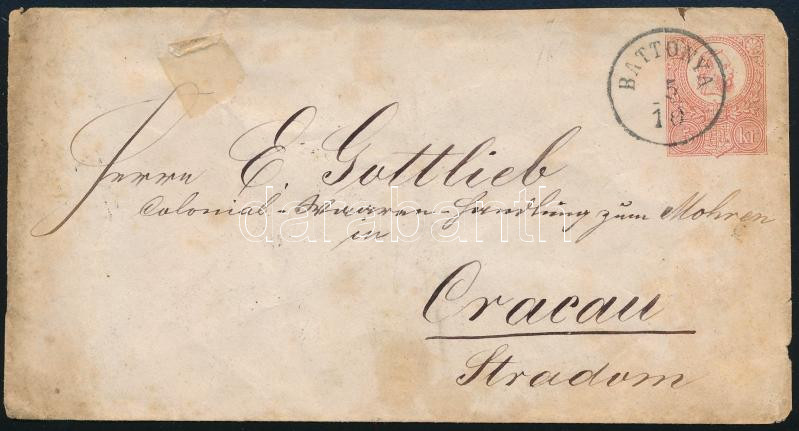 BATTONYA
5/10
kr
Herrn E. Gottlieb
Colonial-Waaren-Handlung zum Mohren
in
Cracau
Stradom
darabanth